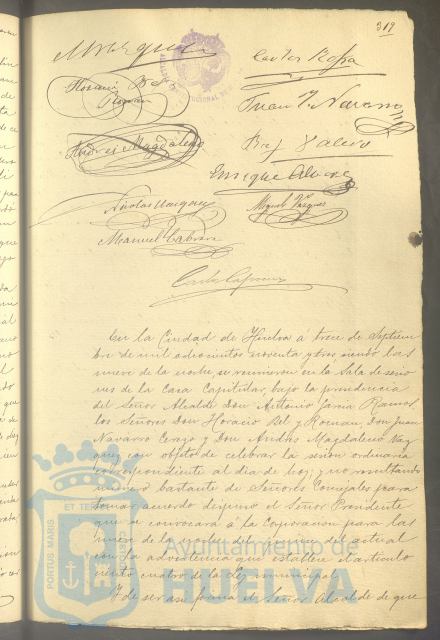 319
Marquez
Carlos Rofa
Horacio Bel
Roman
Juan N Navarro
Andres Magdaleno
Enrique
Nicolas Vazquez
Miguel Vazquez
Manuel Cabrera
Carlos
En la Ciudad de Huelva a trece de Septiem
bre de mil ochocientos noventa y tres siendo las
nueve de la noche se reunieron en la Sala de sesio
nes de la Casa Capitular, bajo la presidencia
del Señor Alcalde Don Antonio Garcia Ramos,
los Señores Don Horacio Bel y Roman, Don Juan
Navarro Cerezo y Don Andres Magdaleno Vaz
quez con objeto de celebrar la sesion ordinaria
correspondiente al dia de hoy; y no resultando
numero bastante de Señores Concejales para
tomar acuerdo dispuso el Señor Presidente
que se convocará a la Corporacion para las
nueve de la noche del quince del actual
con la advertencia que establece el articulo
ciento cuatro de la Ley municipal.
Y de ser asi firma el Señor Alcalde de que
PORTUS MARIS ET TERRAE CUSTODIA
Ayuntamiento de
HUELVA